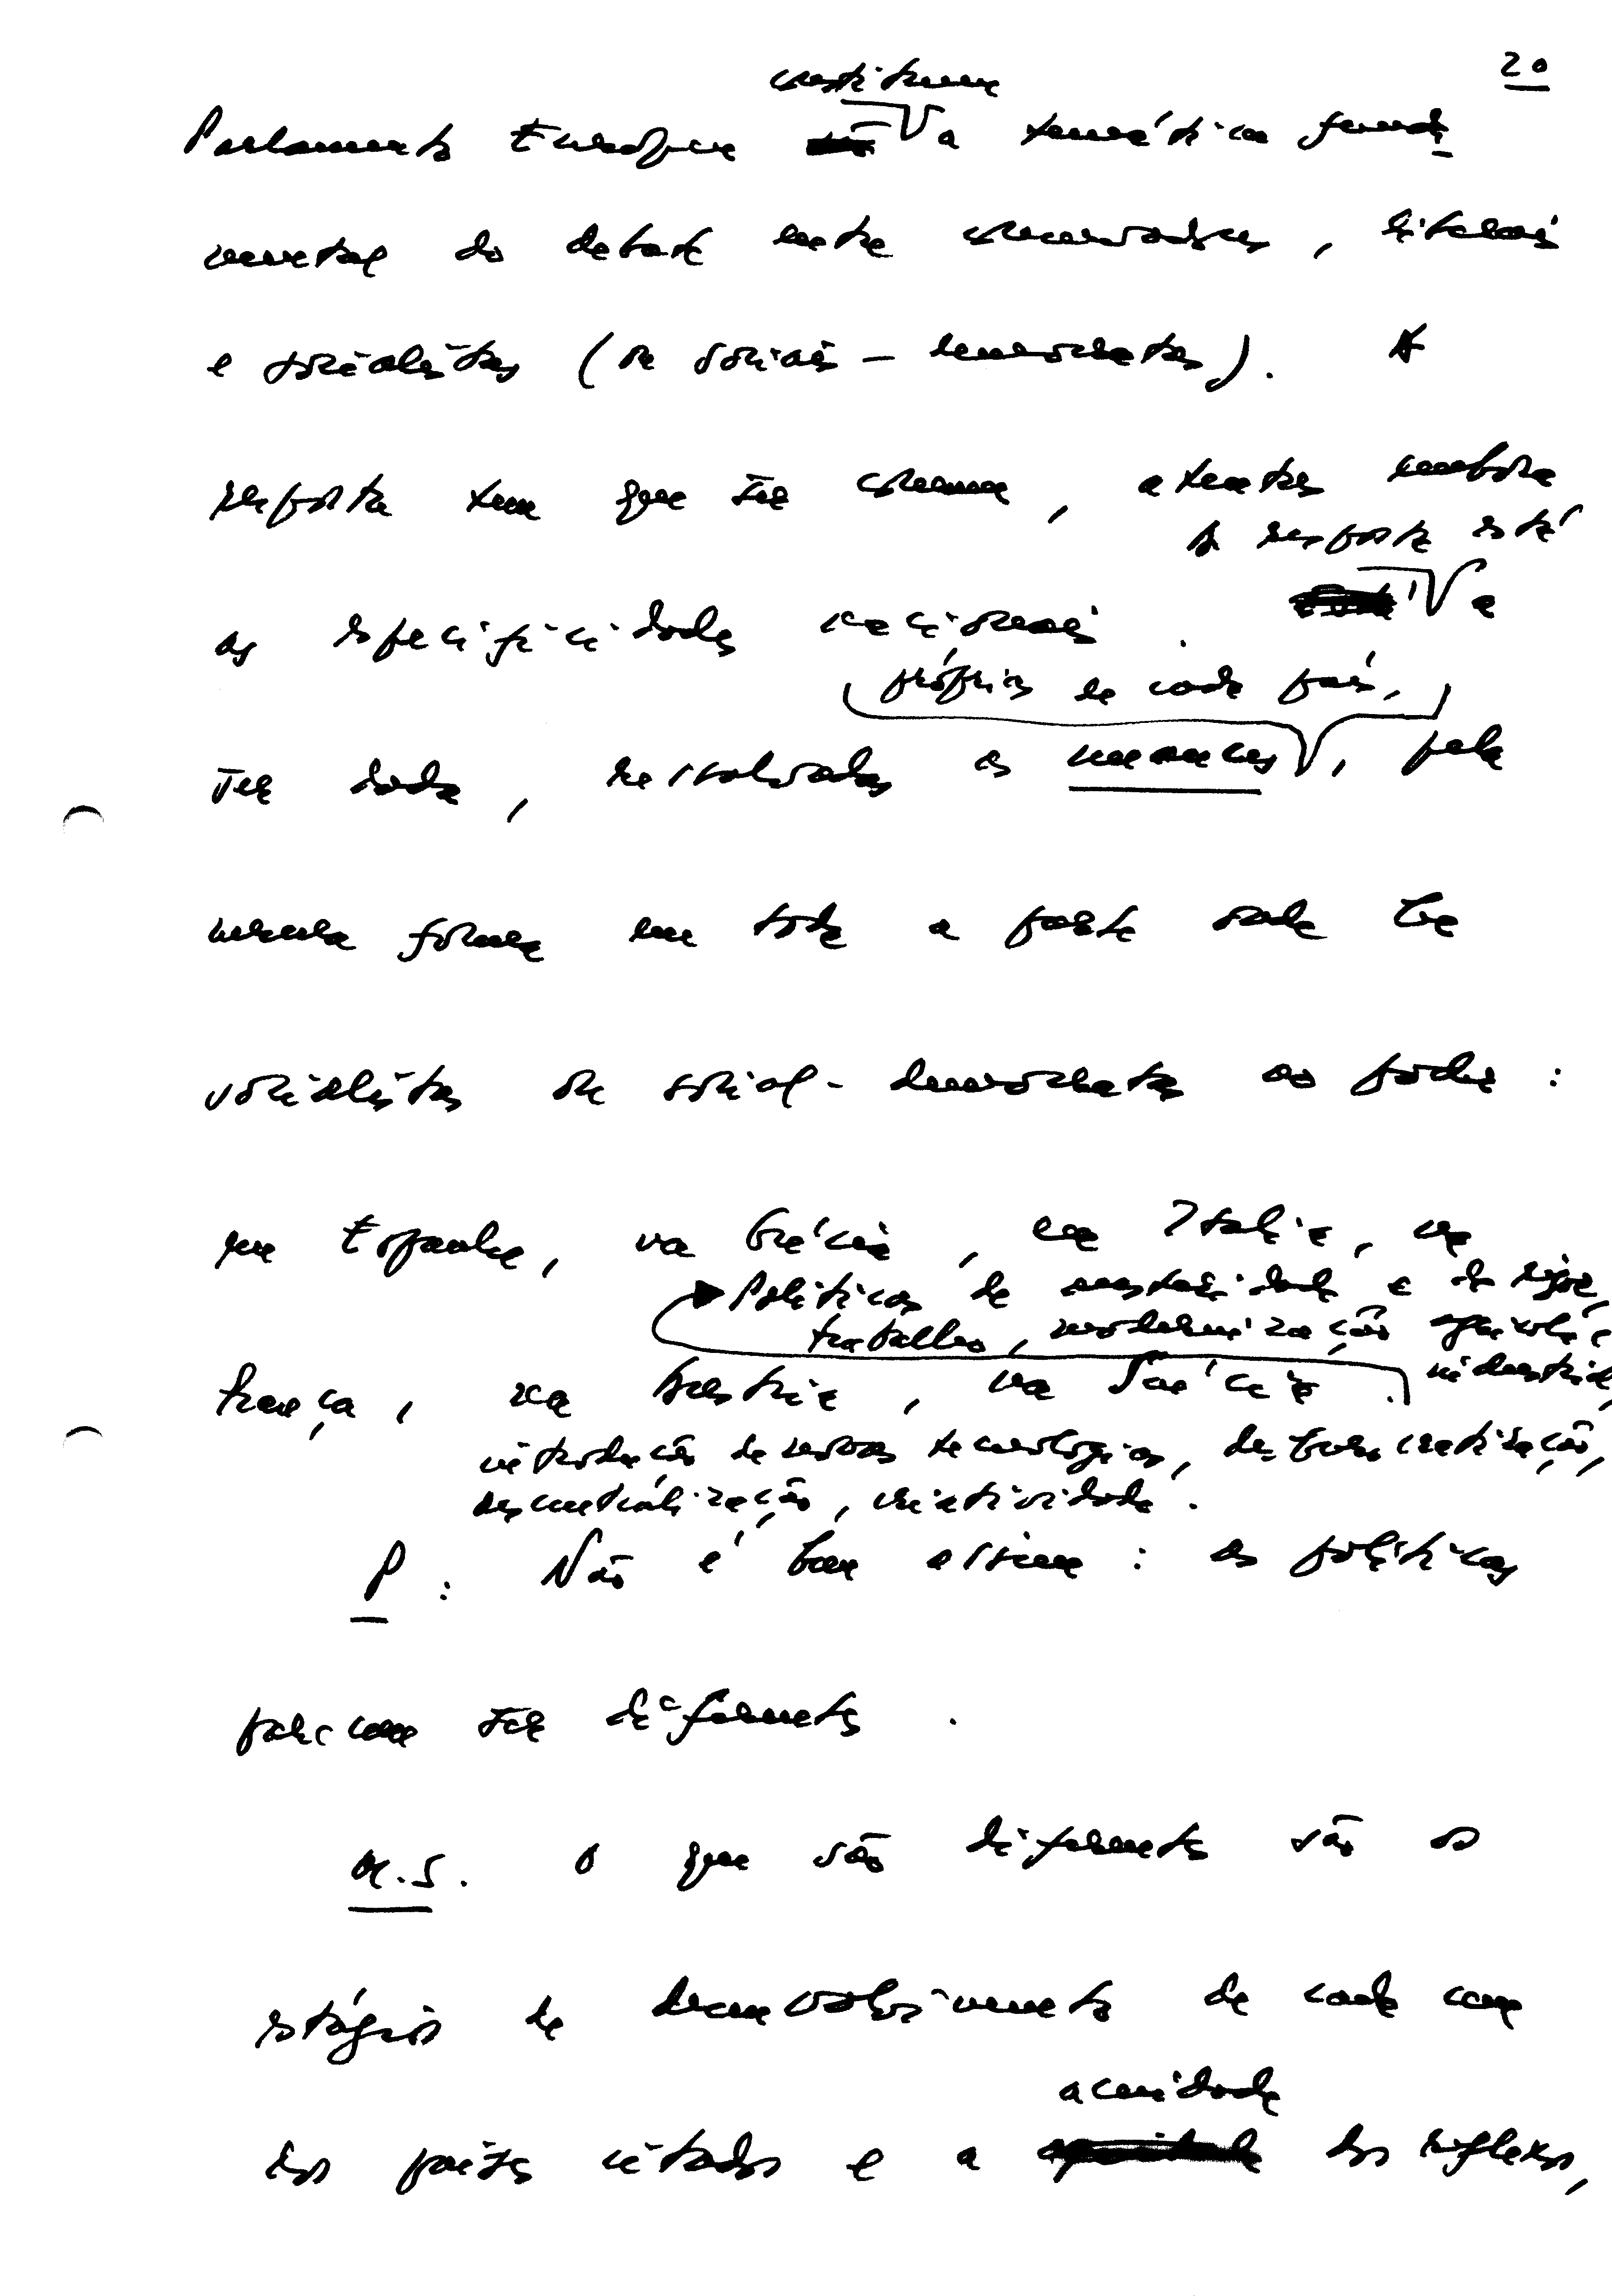 20
constituem
Parlamento Europeu a temática funda
mental do debate entre conservadores, liberais
e socialistas (ou sociais-democratas). A
resposta tem que ser comum, atentas embora
A resposta está
as especificidades nacionais. a
próprias de cada país,
ser dada, ressalvadas as nuances, pela
mesma forma em toda a parte onde há
socialistas ou social-democratas ao poder:
em Espanha, na Grécia, em Itália, na
Políticas de austeridade e de rigor,
trabalho, modernização agrícola e
França, na Áustria, na Suécia.
industrial,
introdução de novas tecnologias, desburocratização,
descentralização, criatividade.
P: Não é bem assim: as políticas
parecem ser diferentes.
M.S. O que são diferentes são os
estágios de desenvolvimento de cada um
acuidade
dos países citados e a dos reflexos,